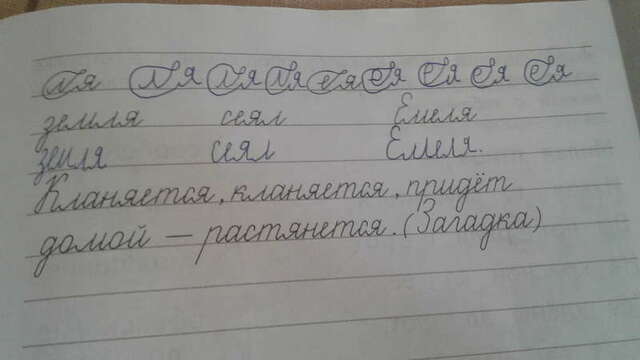 ля ля ля ля ея ея ея ея ея
земля сеял Емеля
земля сеял Емеля.
Кланяется, кланяется, придёт
домой — растянется. (Загадка)